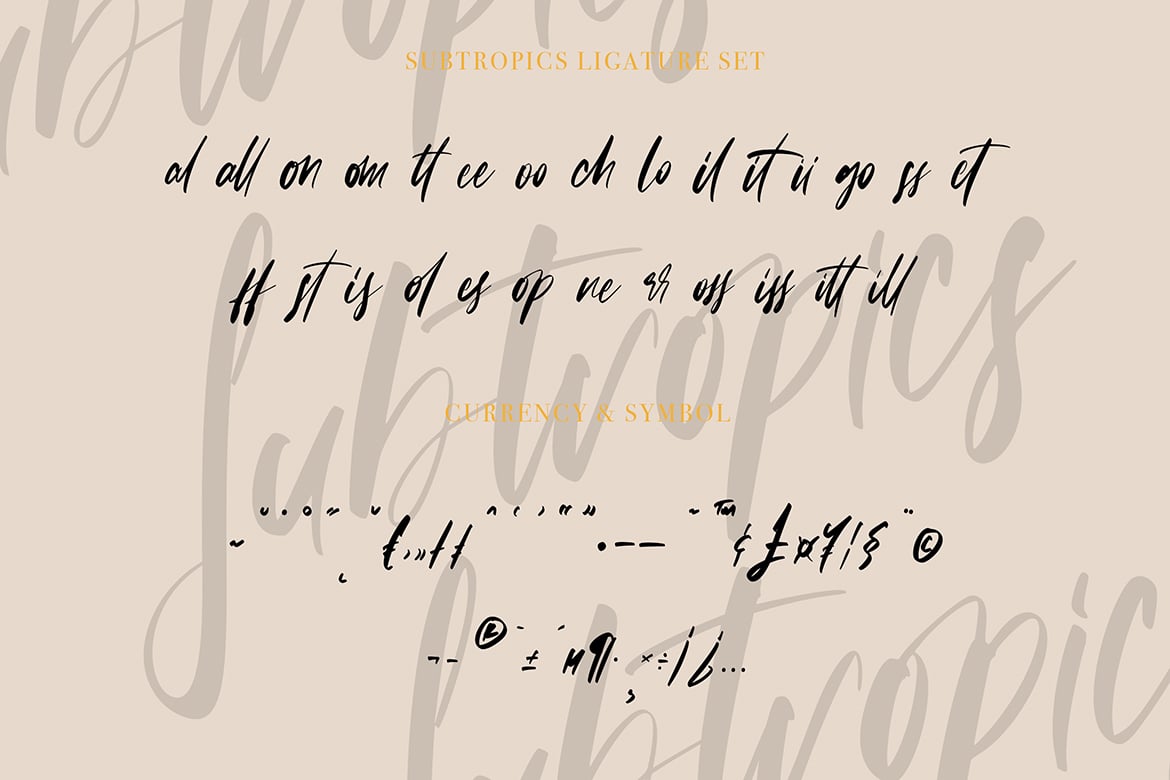 Subtropics
SUBTROPICS LIGATURE SET
al all on om tt ee oo ch lo il it ii go ss et
Subtropics
ff st is ol es op ne rr oss iss itt ill
CURRENCY & SYMBOL
~ ˘ ˙ ˚ ˝ ˛ ˇ ł › » † ‡ ˆ ‘ ’ “ ” • – — ˜ ™ ¢ £ ¤ ¥ ¦ § ¨ ©
Subtropics
¬ - ® ¯ ± ´ µ ¶ · ¸ × ÷ ¡ ¿ …